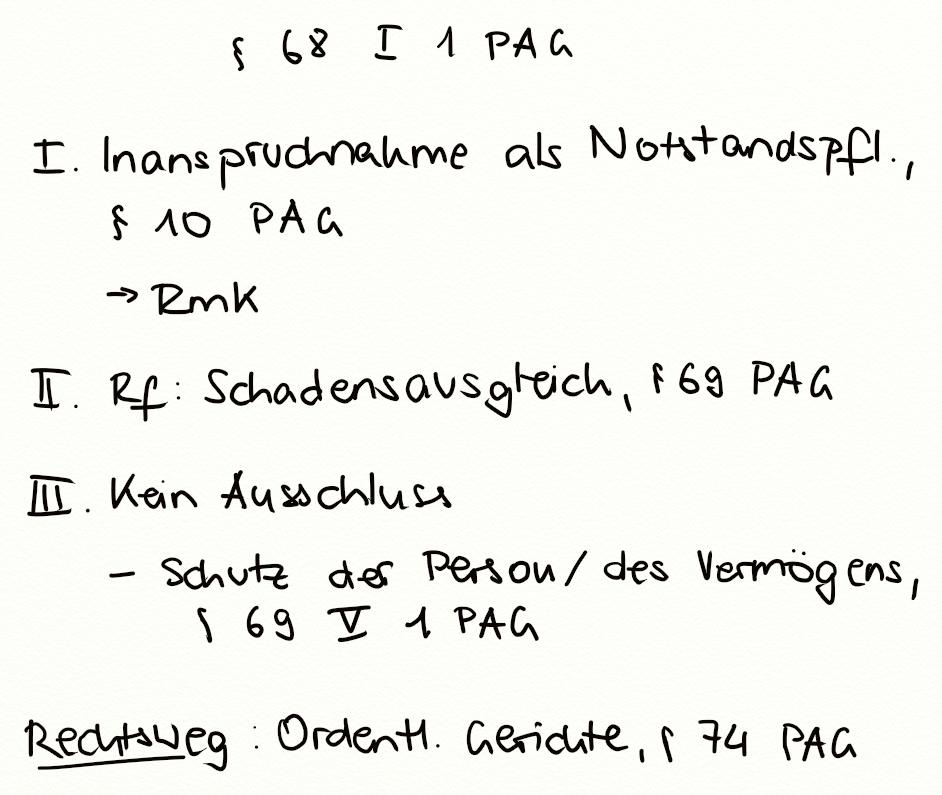 § 68 I 1 PAG
I. Inanspruchnahme als Notstandspfl.,
§ 10 PAG
→ Rmk
II. Rf: Schadensausgleich, § 69 PAG
III. Kein Ausschluss
- Schutz der Person/ des Vermögens,
§ 69 V 1 PAG
Rechtsweg: Ordentl. Gerichte, § 74 PAG